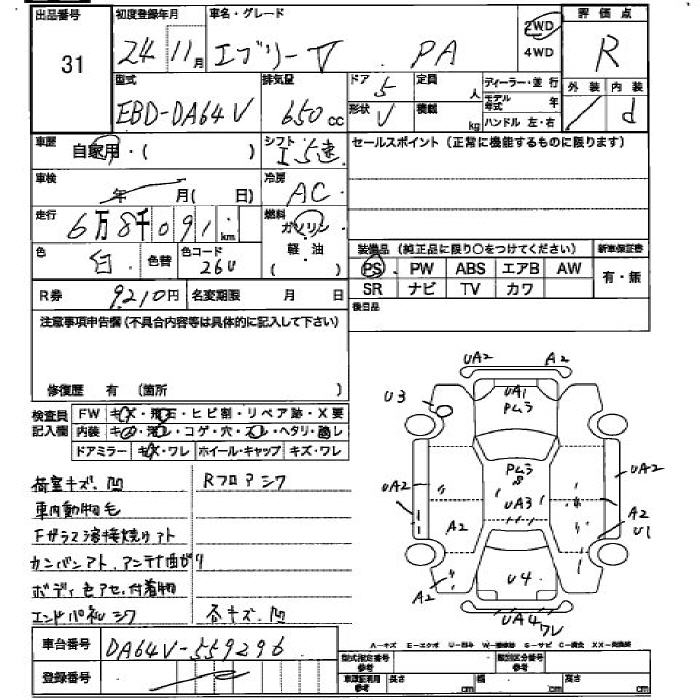 出品番号 初度登録年月 車名・グレード 2WD 4WD 評価点
31 24 11月 エブリーV PA R
型式 排気量 ドア 定員 ディーラー・並行 外装 内装
EBD-DA64V 650cc 5 人 モデル年式 年 d
形状 V 積載 kg ハンドル 左・右
車歴 自家用・( ) シフト I5速 セールスポイント(正常に機能するものに限ります)
車検 年 月( 日) 冷房 AC
走行 6万8千091km 燃料 ガソリン 軽・油 ( )
色 白 色替 色コード 26U
装備品(純正品に限り○をつけてください) 新車保証書
PS PW ABS エアB AW 有・無
SR ナビ TV カワ
R券 9,210円 名変期限 月 日 後日品
注意事項申告欄(不具合内容等は具体的に記入して下さい)
修復歴 有 (箇所 )
検査員記入欄 FW キズ・飛石・ヒビ割・リペア跡・X要
内装 キズ・汚レ・コゲ・穴・スレ・ヘタリ・臨レ
ドアミラー キズ・ワレ ホイール・キャップ キズ・ワレ
荷室キズ、凹 Rフロアシワ
車内動物毛
Fガラス溶接焼けアト
カンバンアト、アンテナ曲がり
ボディ色アセ、付着物
エンドパネルシワ 各キズ、凹
UA2 A2
U3 UA1
ムラ
ムラ
8
UA2 UA3 UA2
A2 A2
U1
A2 U4
UA4 ワレ
車台番号 DA64V-559296
登録番号
A-キズ E-エクボ U-凹み S-サビ C-腐食 XX-交換済
型式指定番号 参考 類別区分番号 参考
車検証有効 参考 長さ cm 幅 cm 高さ cm